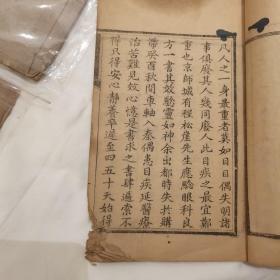 凡人之一身最重者莫如目目偶失明諸
事俱廢其人幾同廢人此目疾之最宜鄭
重也京師城有程松崖先生應驗眼科良
方一書其效驗靈如神余出都時失於購
帶癸酉秋間車軸入秦偶患目疾延醫療
治苦難見效心憶是書求之書肆遍索不
得只得安心靜養早遲至四五十天始得